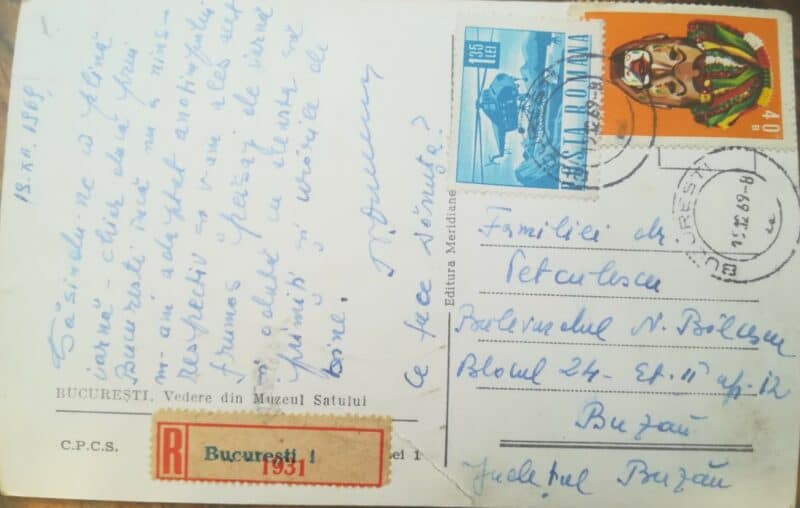 15.XII.1969
Găsindu-ne în plină
iarnă - chiar dacă prin
București încă nu a nins -
m-am adaptat anotimpului
respectiv și v-am ales
frumos peisaj de iarnă
și odată cu aceasta să
primiți și urările de
bine.
Ce face Sănuța?
BUCUREȘTI. Vedere din Muzeul Satului
C.P.C.S.
R
București 1
1931
ei 1
Editura Meridiane
1,35
LEI
POSTA ROMINA
40
B
BUCUREȘTI
Familiei dr
Petculescu
Bulevardul N. Bălcescu
Blocul 24 - Et. II ap. 12
Buzău
Județul Buzău